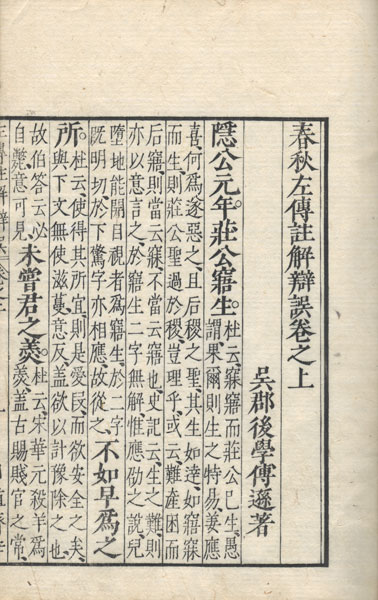 春秋左傳註解辯誤卷之上
吳郡後學傅遜著
隱公元年莊公寤生。
杜云、寐寤而莊公已生、愚
謂果爾則生之特易、姜應
喜、何爲遂惡之、且后稷之聖、其生如達、如寤寐
而生、則莊公聖過於稷、豈理乎、或云難產困而
后寤、則當云寐、不當云寤也、史記云、生之難、則
亦以意言之、於寤生二字無解、惟應劭之說、兒
墮地能開目視者爲寤生、於二字
既明切、於下驚字亦相應、故從之、
不如早爲之
所。
杜云、使得其所宜、則是愛民、而欲安全之矣、
與下文無使滋蔓、意反、蓋欲以計豫除之也、
故伯答云、必
自斃、意可見
未嘗君之羹。
杜云、宋華元殺羊爲
羹、蓋古賜賤官之常、